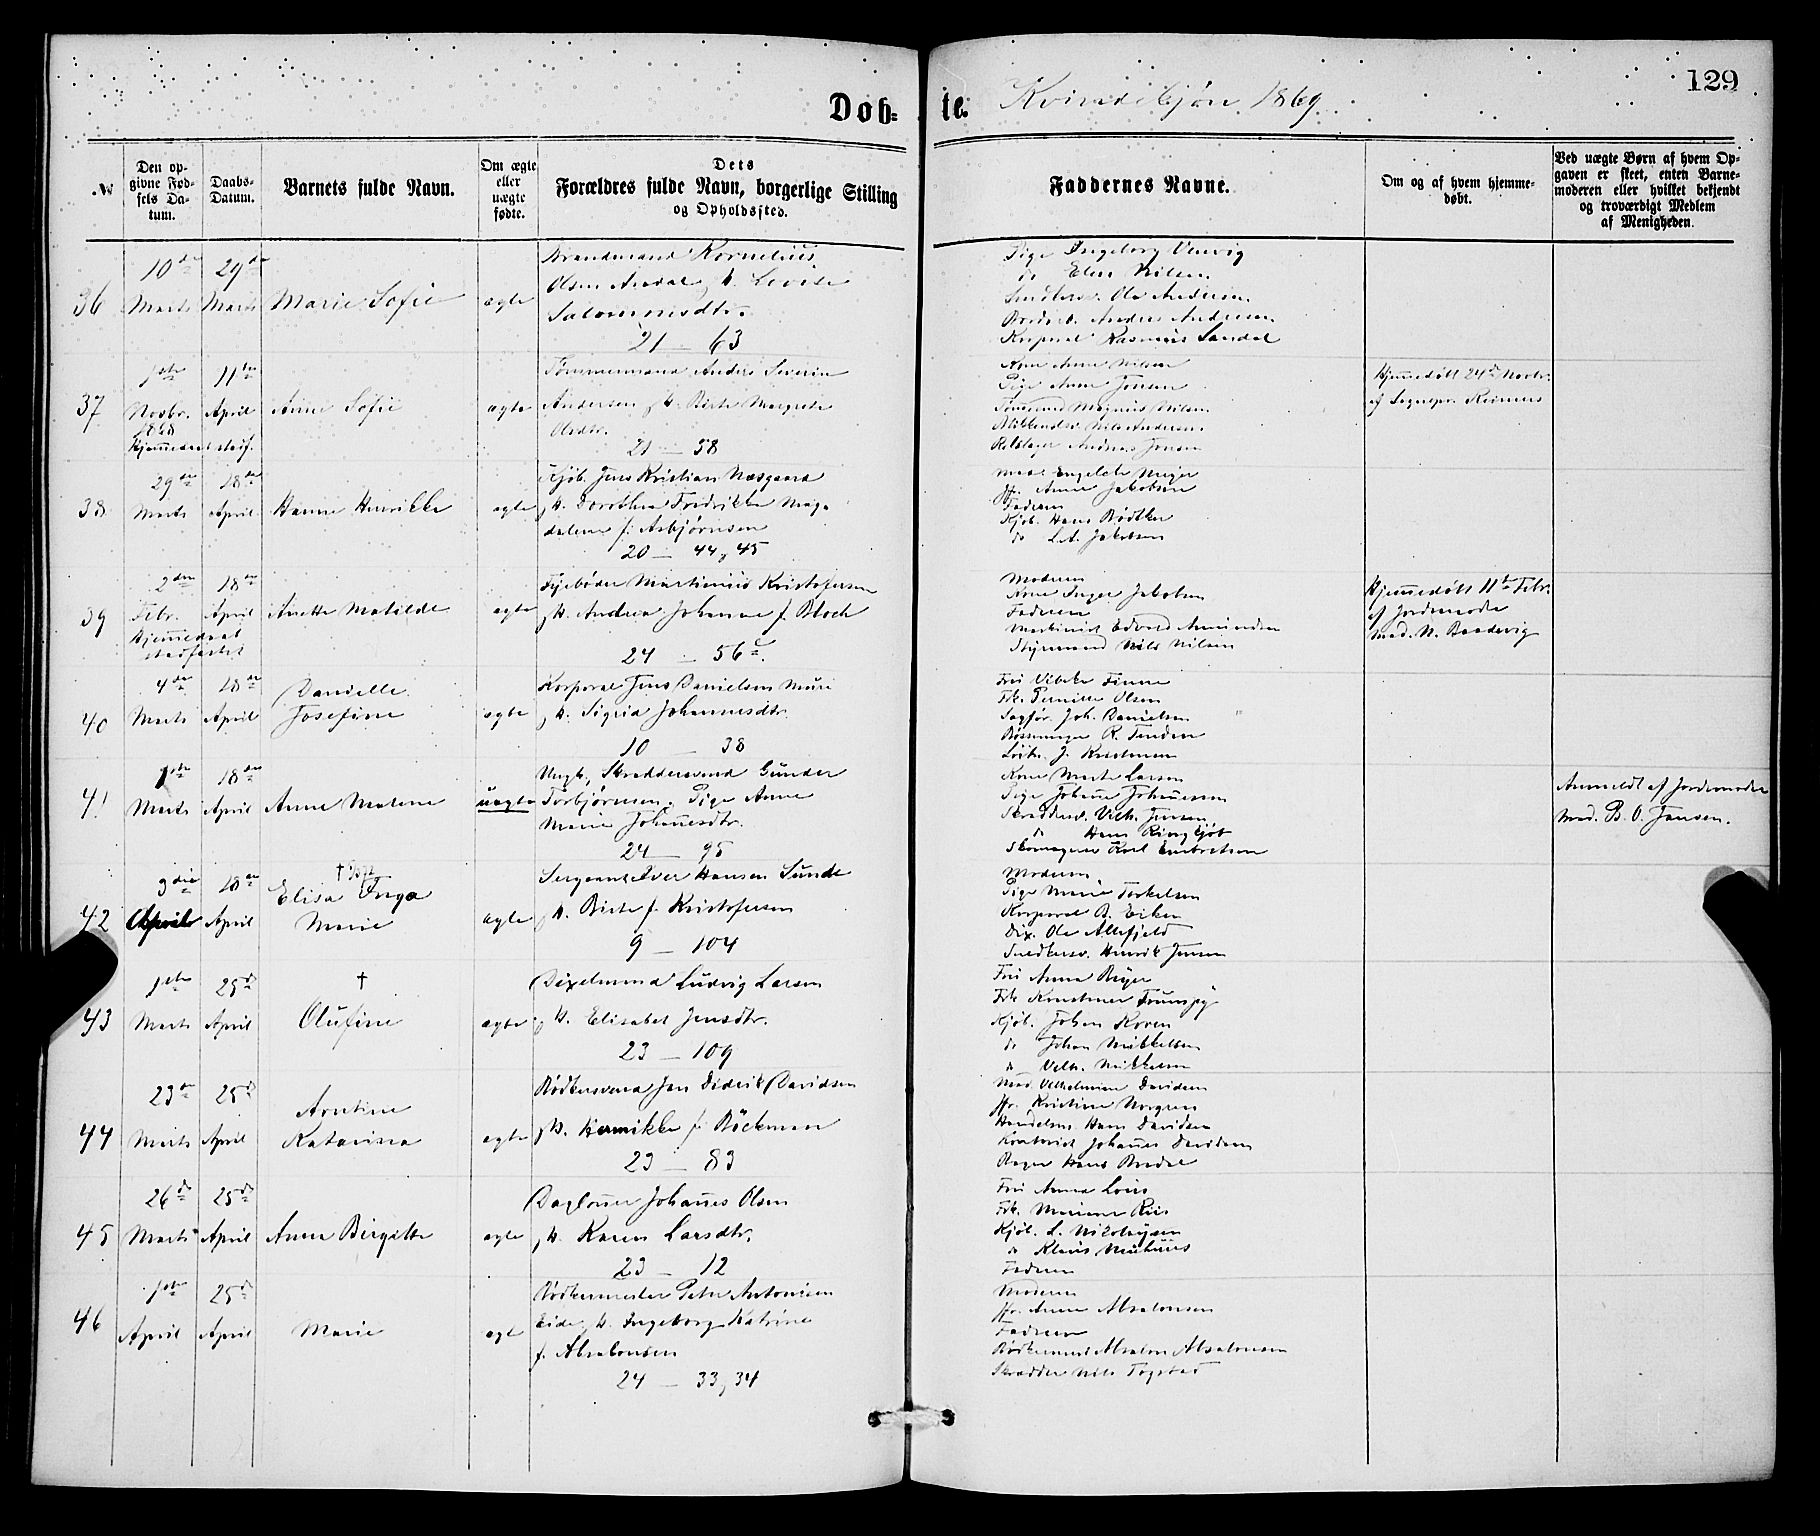 129
Døbte. Kvindekjøn 1869
№
Den opgivne Fødsels Datum.
Daabs-Datum.
Barnets fulde Navn.
Om ægte eller uægte fødte.
Dets Forældres fulde Navn, borgerlige Stilling og Opholdssted.
Faddernes Navne.
Om og af hvem hjemmedøbt.
Ved uægte Børn af hvem Opgaven er skeet, enten Barnemoderen eller hvilket bekjendt og troværdigt Medlem af Menigheden.
36
10de Marts
29de Marts
Marie Sofie
ægte
Brandmand Kornelius
Olsen Aadal, H. Lovise
Salomonsdtr.
21 — 63
Pige Ingeborg
do Elen Nilsen
Ole Andersen
Anders Andersen
Korporal Rasmus Sandal
37
1ste Novbr. 1868
Hjemmedaab stadf.
11te April
Anne Sofie
ægte
Tømmermand Anders Severin
Andersen, H. Birte Margrete
Olsdtr.
21 — 58
Kone Anne Nilsen
Pige Anne Jonsen
Magnus Nilsen
Nils Andersen
Rebslager Andreas Jonsen
Hjemmedøbt 24de Novbr.
af Sognepr. Reimers
38
29de Marts
18de April
Hanne Henrikke
ægte
Kjøb. Jens Kristian Næsgaard
H. Dorothea Fredrikke Magdalene f. Asbjørnsen
20 — 44, 45
Engelche Meyer
Jfr. Anne Jakobsen
Faderen
Kjøb. Hans Bødtker
do L.A. Jakobsen
39
2den Febr.
Hjemmedaab stadfæstet
18de April
Anette Matilde
ægte
Fyrbøder Martinius Kristofersen
H. Andrea Johanne f. Bloch
24 — 56c
Moderen
Kone Inger Jakobsen
Faderen
Maskinist Edvard Amundsen
Styrmand Nils Nilsen
Hjemmedøbt 11te Febr.
af Jordemoder
Mad. N. Baadsvig
40
4de Marts
18de April
Danielle
Josefine
ægte
Korporal Jens Danielsen Muri
H. Sigrid Johannesdtr.
10 — 38
Fru Vibeke Finne
Frk. Pernille Olsen
Sagfør. Joh. Danielsen
Bøssemager R. Tenden
J. Kristensen
41
1ste Marts
18de April
Anne Malene
uægte
Ungk. Skræddersvend Gunder
Torbjørnsen, Pige Anne
Marie Johannesdtr.
24 — 95
Kone Marte Larsen
Pige Johanne Johannessen
Skrædders. Vilh. Jensen
do Hans Ringkjøb
Skomager Karl Embretsen
Anmeldt af Jordemoder
Mad. B. O. Jansen.
42
3die April
18de April
†
Elisa Inga
Marie
ægte
Sergeant Iver Hansen Sunde
H. Birte f. Kristofersen
9 — 104
Moderen
Pige Marie Torkelsen
Korporal B. Eiken
Dix. Ole Altefjeld
Snedkersv. Henrik Jensen
43
1ste Marts
25de April
†
Olufine
ægte
Dixelmand Ludvig Larsen
H. Elisabet Jensdtr.
23 — 109
Fru Anna Beyer
Frk. Konstance Trumpy
Kjøb. Johan Koren
do Johan Mikkelsen
do Vilh. Mikkelsen
44
23de Marts
25de April
Arntine
Katarina
ægte
Bødkersvend Jan Didrik Davidsen
H. Henrikke f. Böckman
23 — 83
Mad. Vilhelmine Davidsen
Jfr. Kristine Norgren
Handelsm. Hans Davidsen
Kontorist Johannes Davidsen
Bager Hans Bredal
45
26de Marts
25de April
Anne Birgitte
ægte
Dagleier Johannes Olsen
H. Karen Larsdtr.
23 — 12
Fru Anna
Frk. Mariane
Kjøb. L. Nikolaysen
do Klaus
Faderen
46
1ste April
25de April
Marie
ægte
Bødkermester Peter Antonisen
Eide, H. Ingeborg Katrine
f. Absalonsen
24 — 33, 34
Moderen
Jfr. Anne Absalonsen
Faderen
Absalon Absalonsen
Skrædder Nils